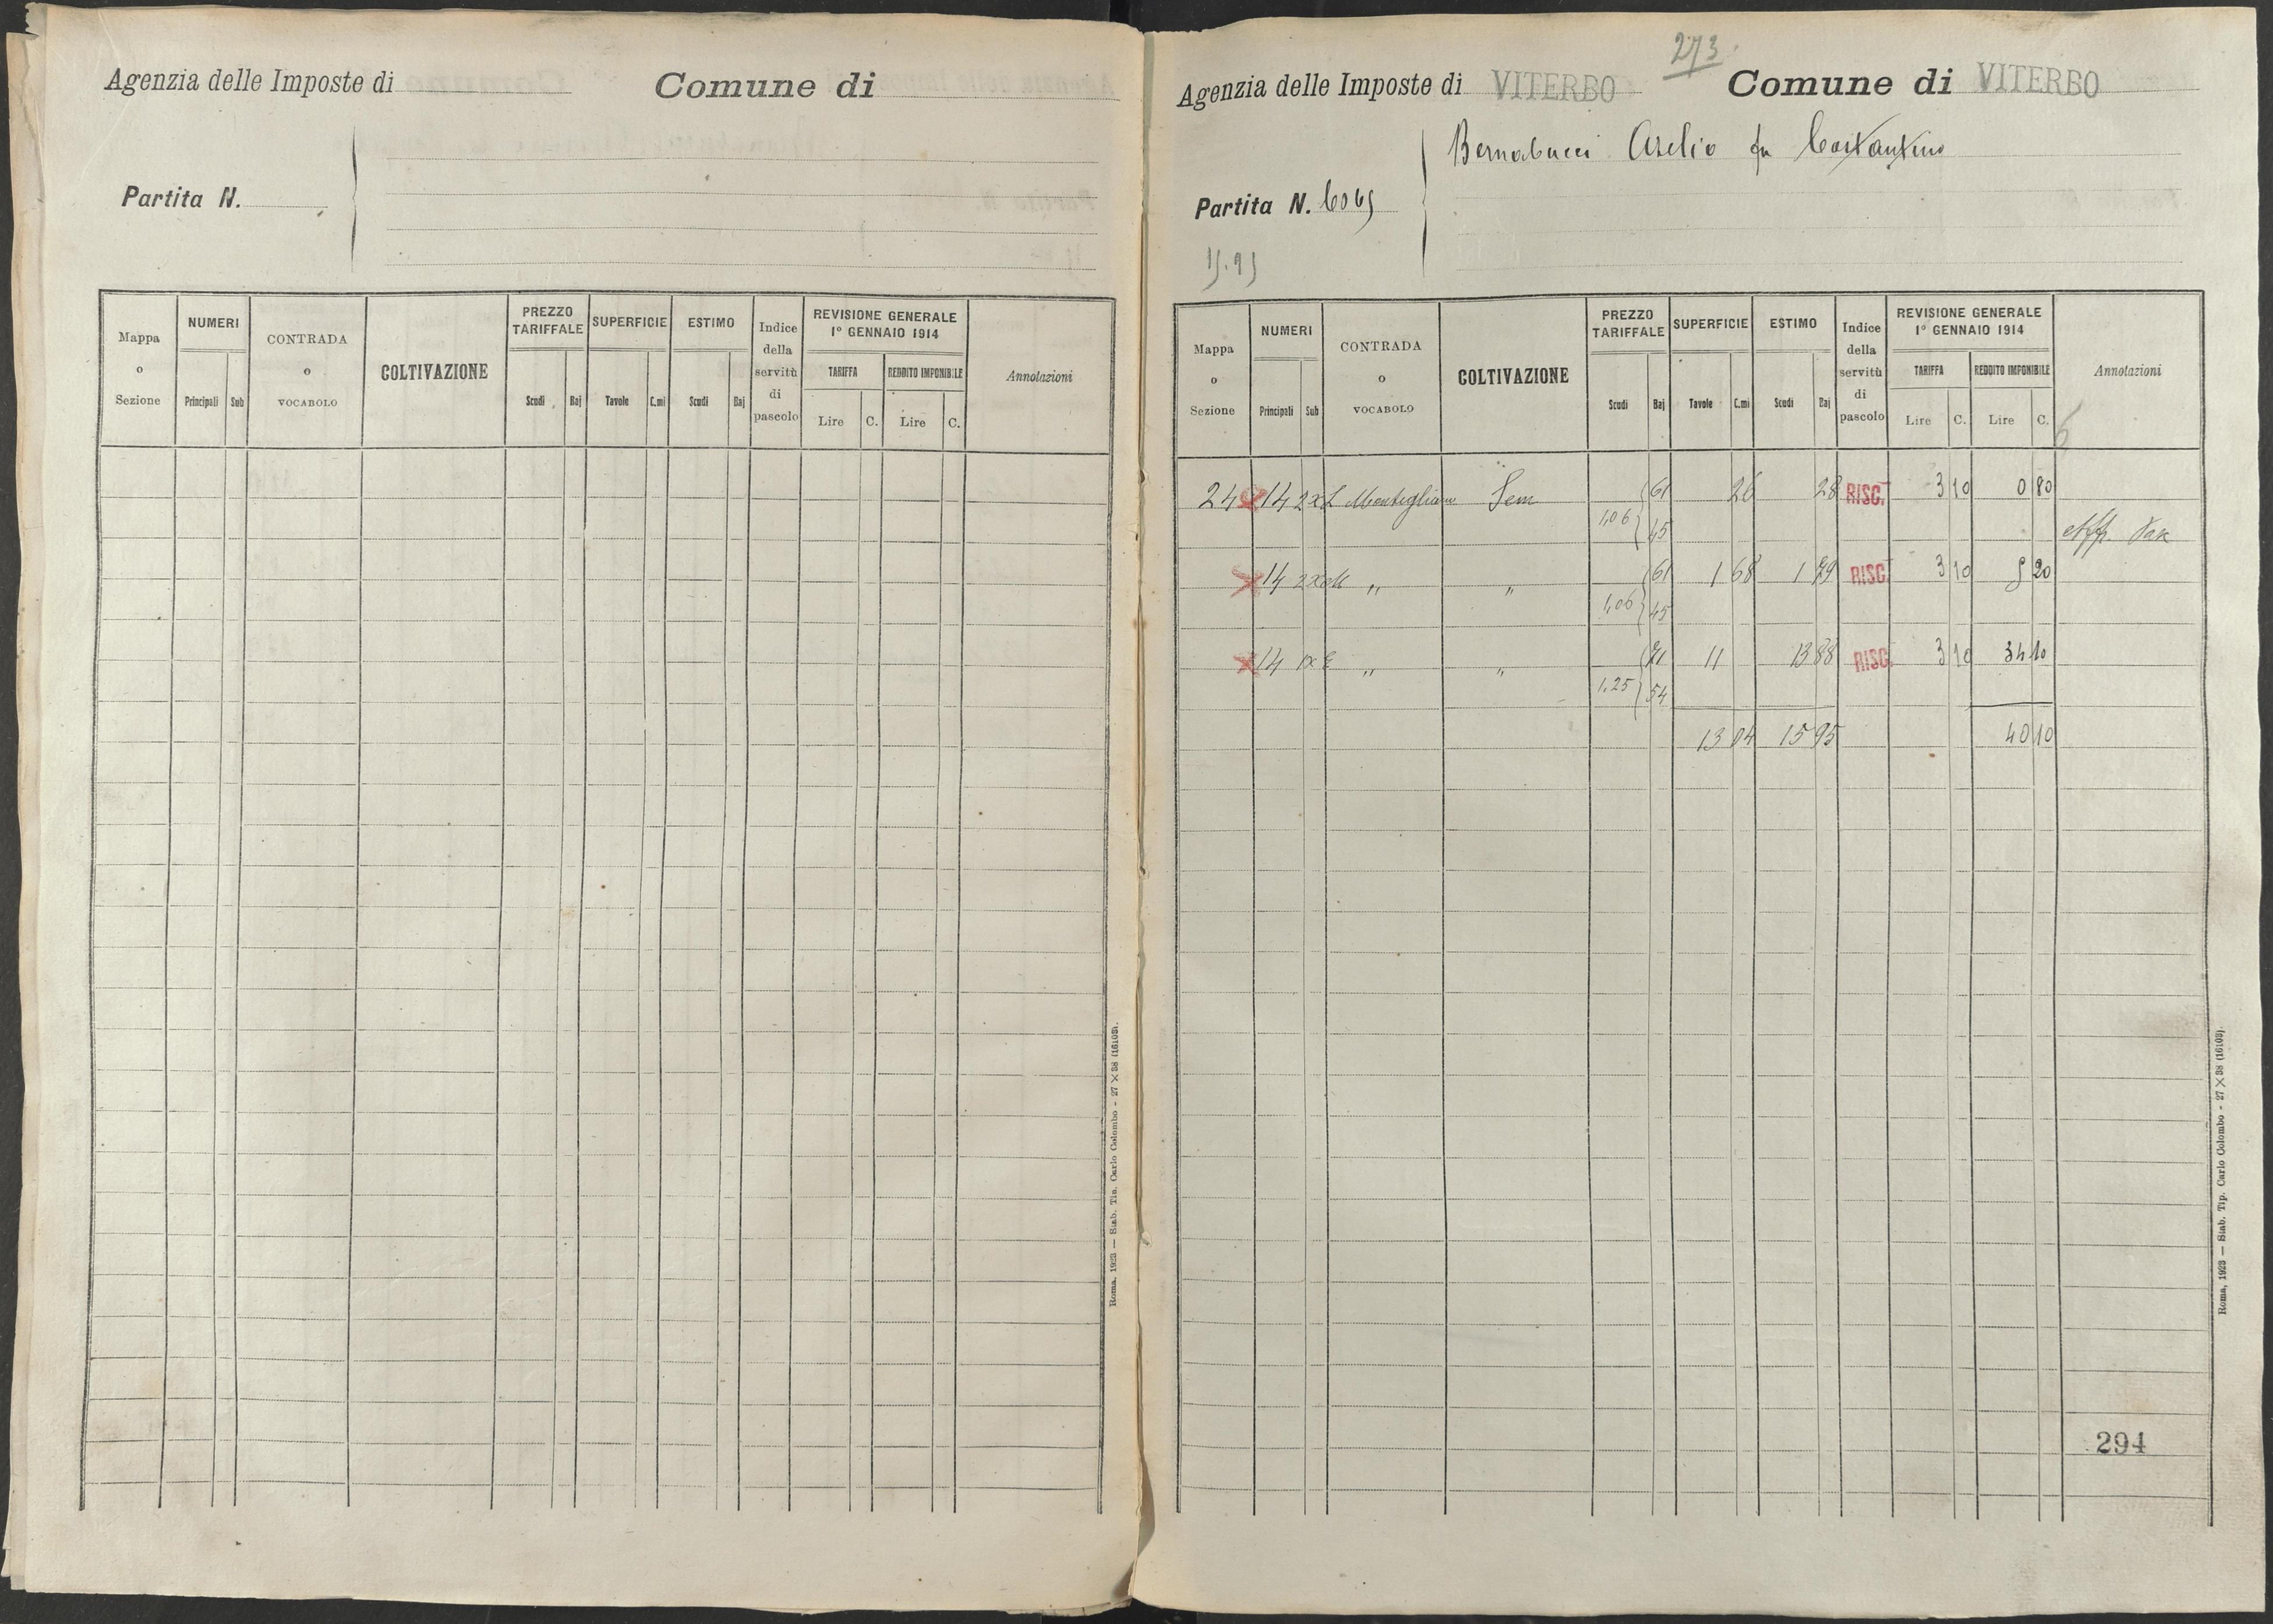 Agenzia delle Imposte di
Comune di
Partita N.
Mappa o Sezione
NUMERI
Principali
Sub
CONTRADA o VOCABOLO
COLTIVAZIONE
PREZZO TARIFFALE
Scudi
Baj
SUPERFICIE
Tavole
C.mi
ESTIMO
Scudi
Baj
Indice della servitù di pascolo
REVISIONE GENERALE 1° GENNAIO 1914
TARIFFA
Lire
C.
REDDITO IMPONIBILE
Lire
C.
Annotazioni
Roma, 1923 — Stab. Tip. Carlo Colombo - 27 × 38 (16103).
273
Agenzia delle Imposte di VITERBO
Comune di VITERBO
Bernabucci fu Costantino
Partita N. 6065
15.95
Mappa o Sezione
NUMERI
Principali
Sub
CONTRADA o VOCABOLO
COLTIVAZIONE
PREZZO TARIFFALE
Scudi
Baj
SUPERFICIE
Tavole
C.mi
ESTIMO
Scudi
Baj
Indice della servitù di pascolo
REVISIONE GENERALE 1° GENNAIO 1914
TARIFFA
Lire
C.
REDDITO IMPONIBILE
Lire
C.
Annotazioni
6
24 14 2x L Montigliano Sem 61 26 28 RISC. 3 10 0 80
1,06 45
14 2x M " " 61 1 68 1 79 RISC. 3 10 5 20
1,06 45
14 1x E " " 71 11 13 88 RISC. 3 10 34 10
1,25 54
13 04 15 95 40 10
294
Roma, 1923 — Stab. Tip. Carlo Colombo - 27 × 38 (16103).